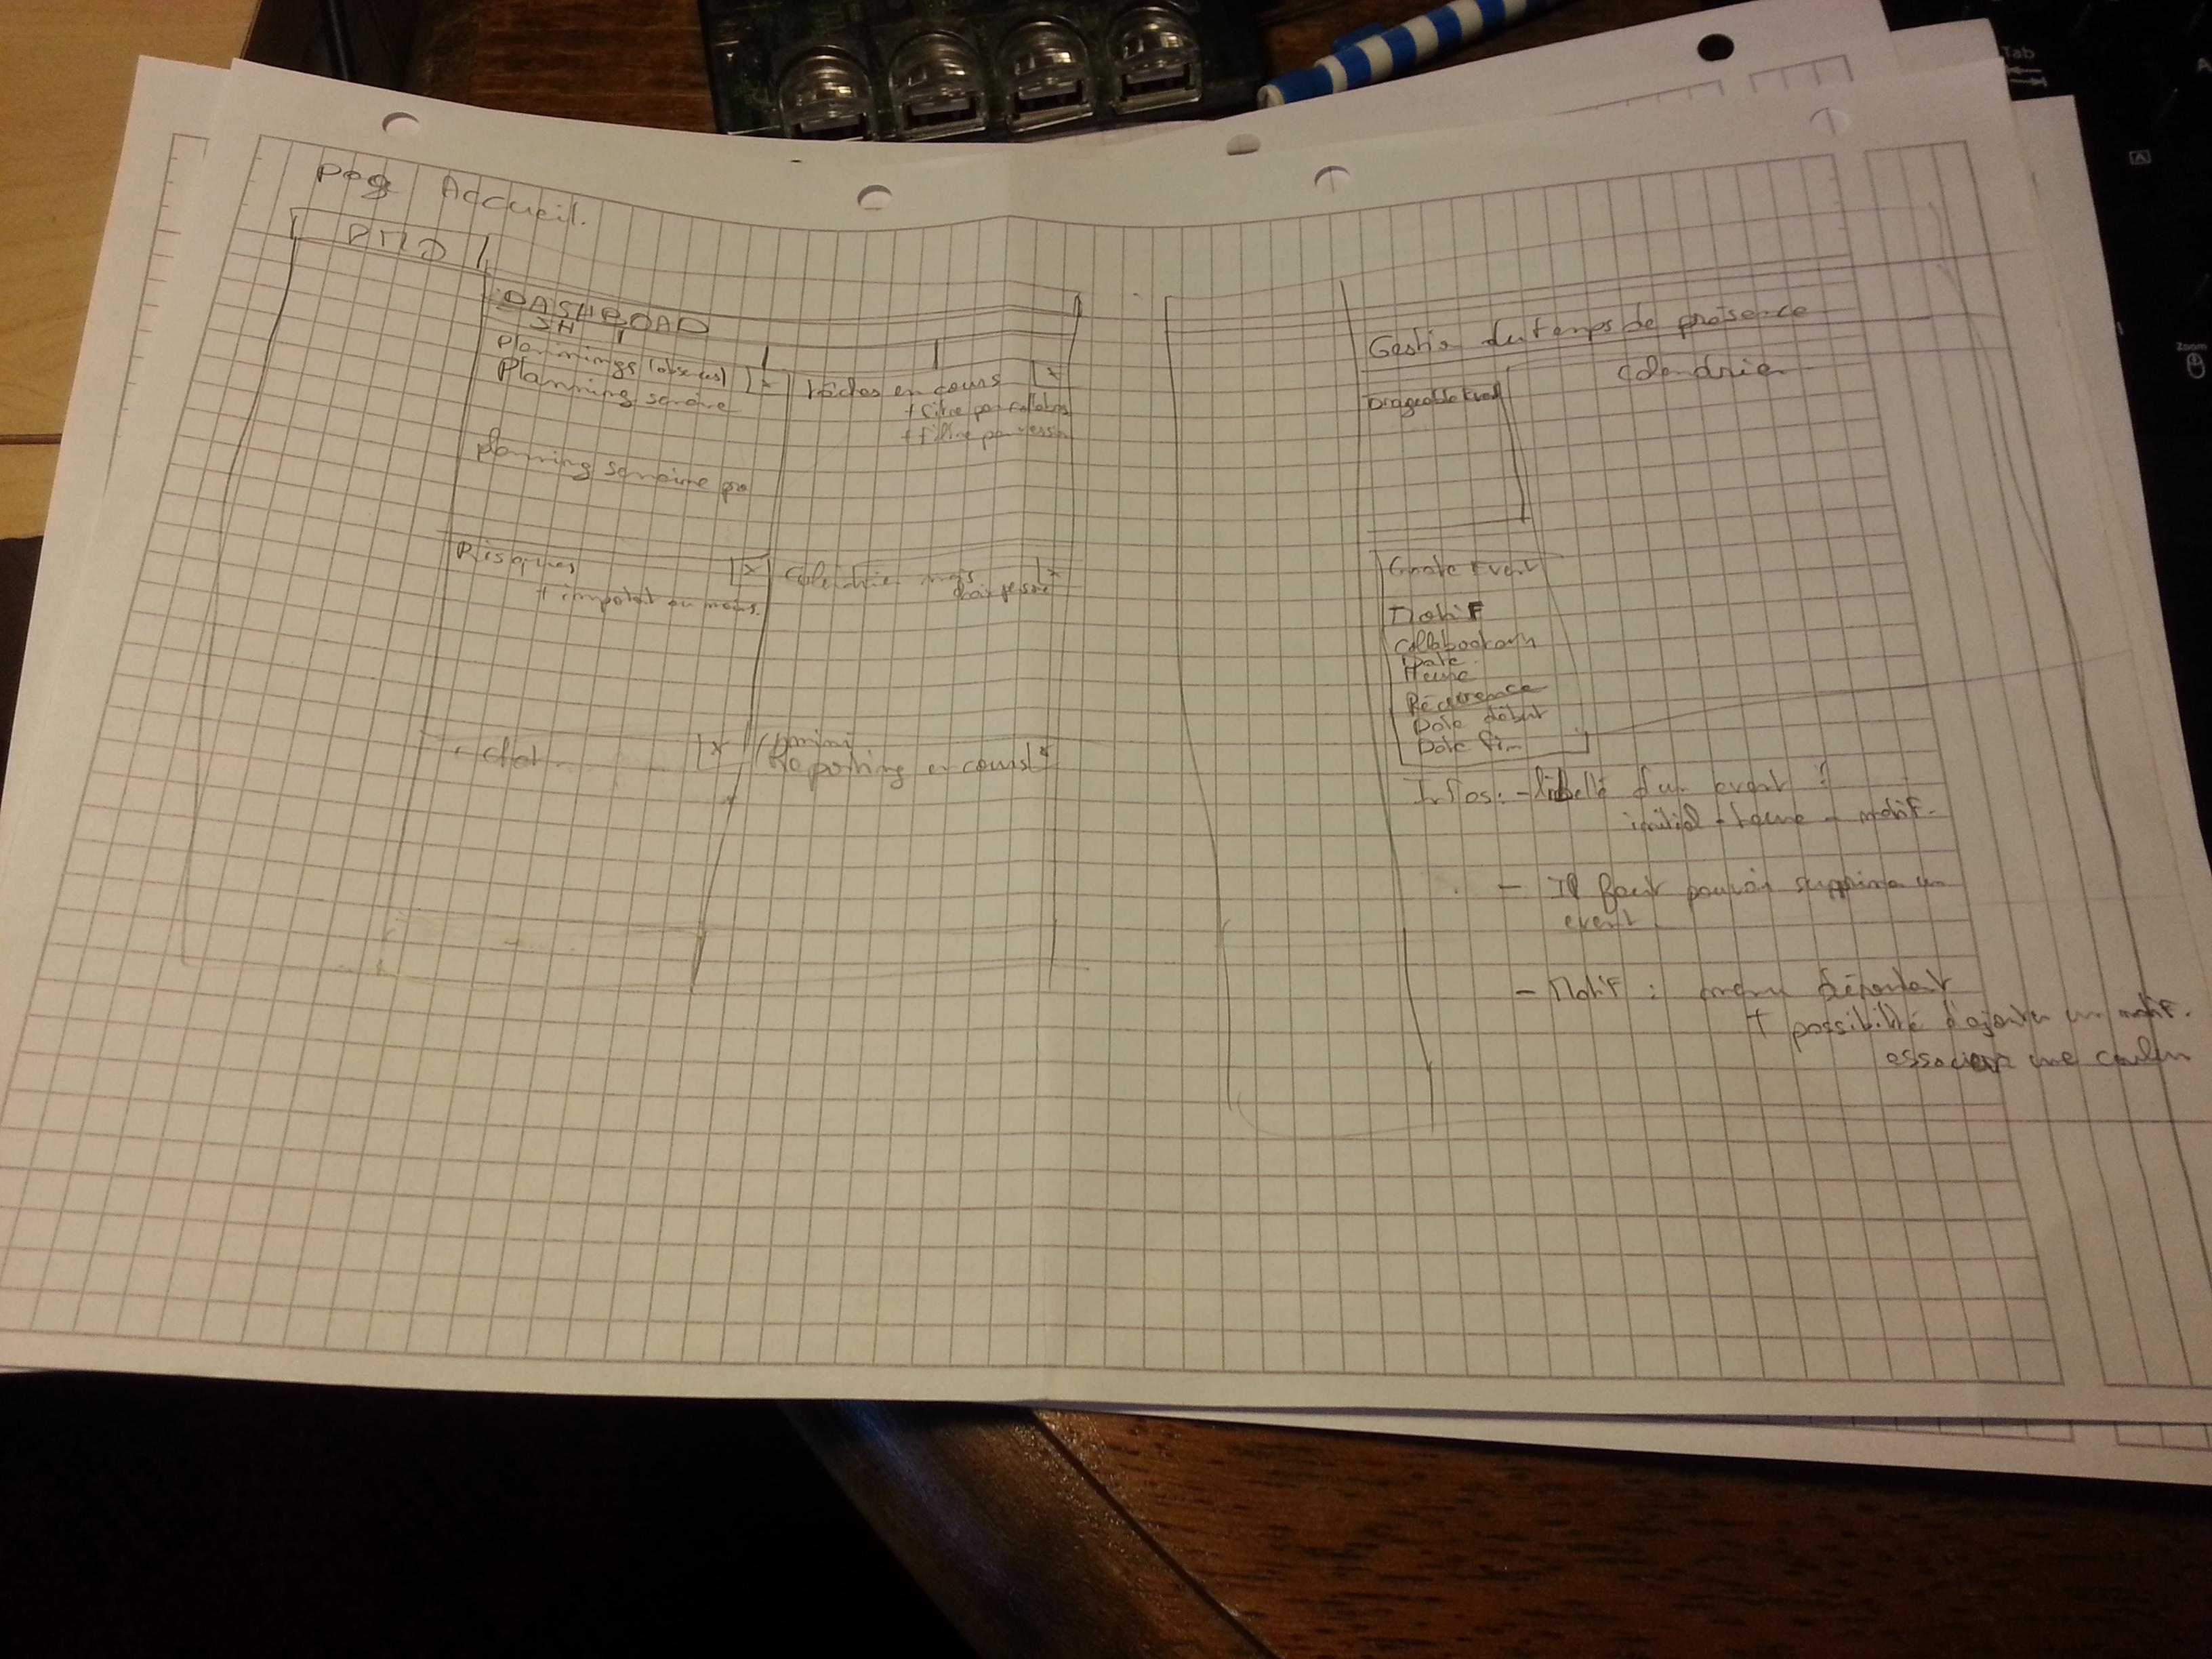 page Accueil.
DASHBOAD
JH
Plannings (absences)
Planning semaine
planning semaine pro
tâches en cours
+ filtre par collabo
+ filtre par
Risques
+ important au moins.
calendrier mois
par
chat
mini
Reporting en cours
Gestion du temps de présence
calendrier
Drageable Event
Create Event
Motif
Collaborateur
Date
Heure
Récurrence
Date début
Date fin
Infos: - libellé d'un event :
initial - heure - motif.
- Il faut pouvoir supprimer un
event
- Motif : menu déroulant
+ possibilité d'ajouter un motif.
associer une couleur
Tab
A
Zoom